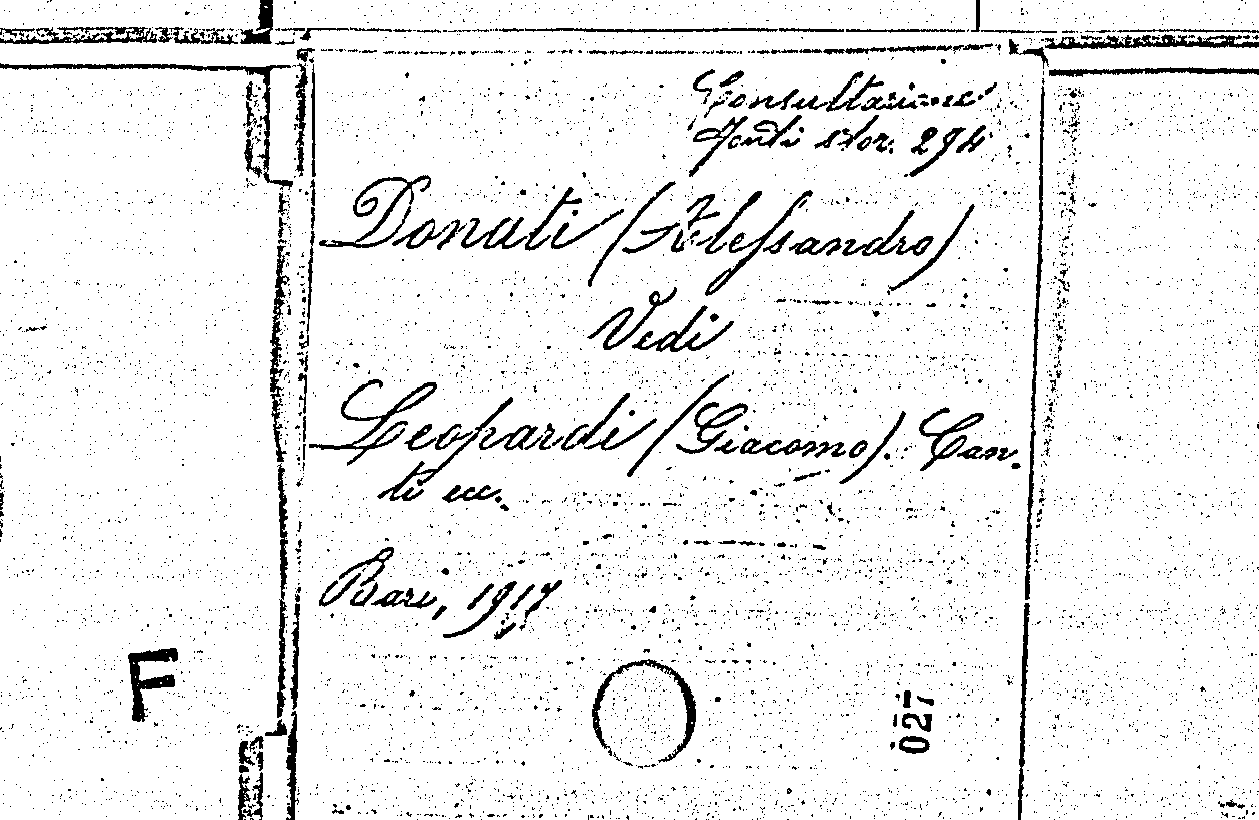 Consultazione
Fonti stor. 294
Donati (Alessandro)
Vedi
Leopardi (Giacomo). Can-
ti ecc.
Bari, 1917
F
027